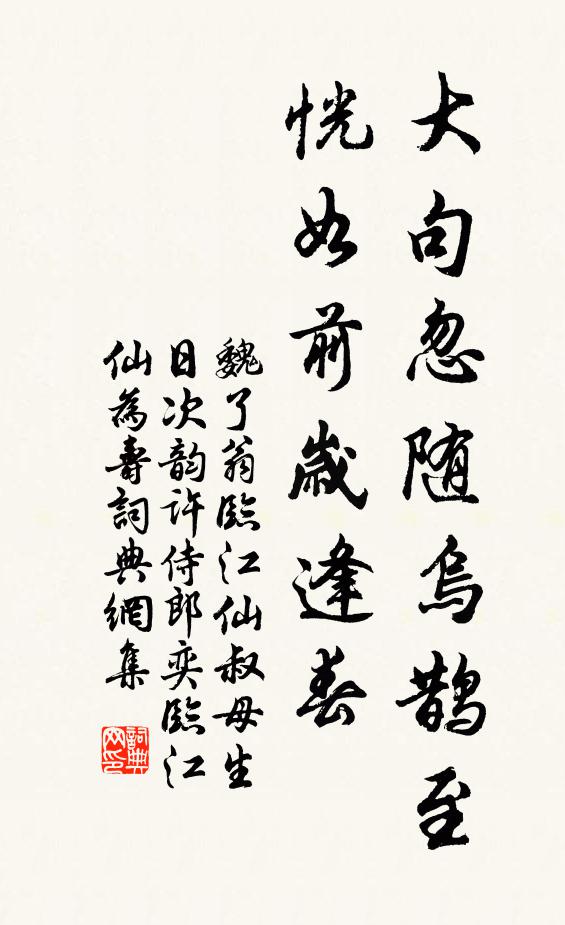 大句忽随烏鵲至
恍如前歲逢春
魏了翁臨江仙叔母生
日次韵許侍郎奕臨江
仙為壽詞典網集
詞典网印